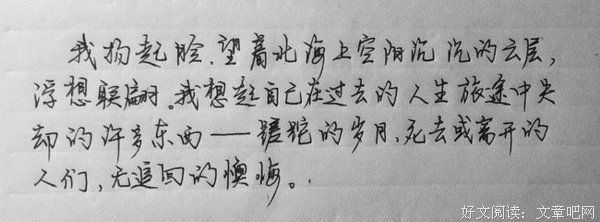 我扬起脸,望着北海上空阴沉沉的云层,
浮想联翩。我想起自己在过去的人生旅途中失
却的许多东西——蹉跎的岁月,死去或离开的
人们,无追回的懊悔。
好文阅读:文章吧网